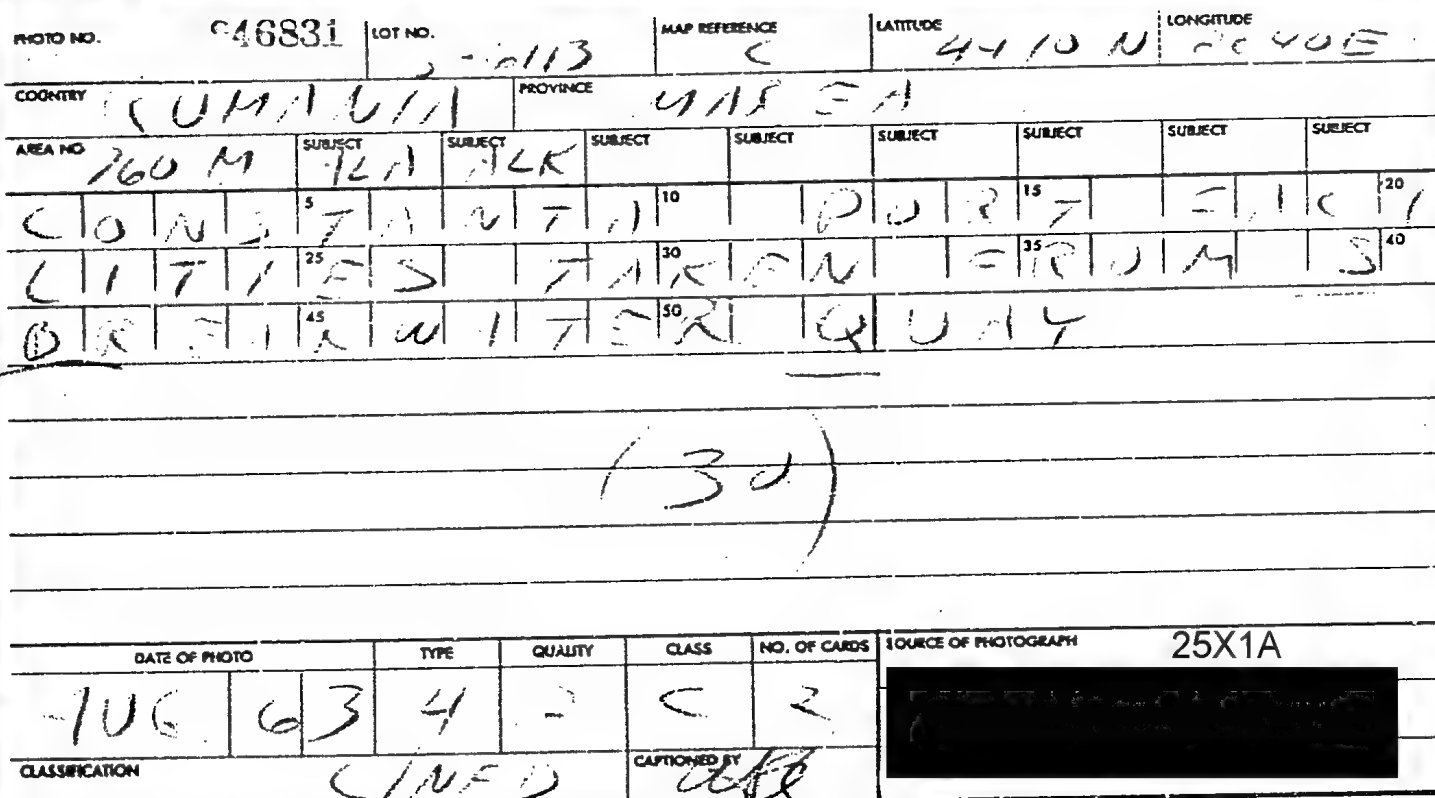 PHOTO NO. 946831 LOT NO. MAP REFERENCE C LATITUDE 44 10 N LONGITUDE
COUNTRY RUMANIA PROVINCE
AREA NO 760 M SUBJECT ALA SUBJECT ALK SUBJECT SUBJECT SUBJECT SUBJECT SUBJECT SUBJECT
CONSTANTA PORT FACI
LITIES TAKEN FROM S
BREAKWATER QUAY
(3d)
DATE OF PHOTO TYPE QUALITY CLASS NO. OF CARDS SOURCE OF PHOTOGRAPH 25X1A
AUG 63 4 C 2
CLASSIFICATION CAPTIONED BY